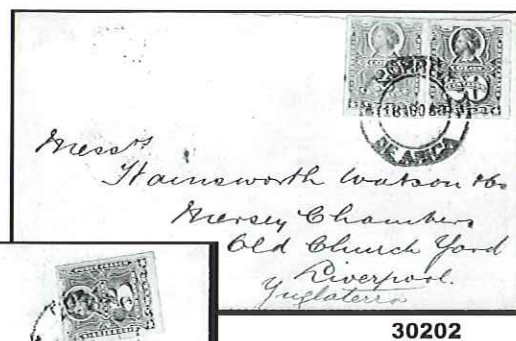 DE ARICA
Mess.rs
Hainsworth Watson & Co
Mersey Chambers
Old Church Yard
Liverpool.
Ynglaterra
30202